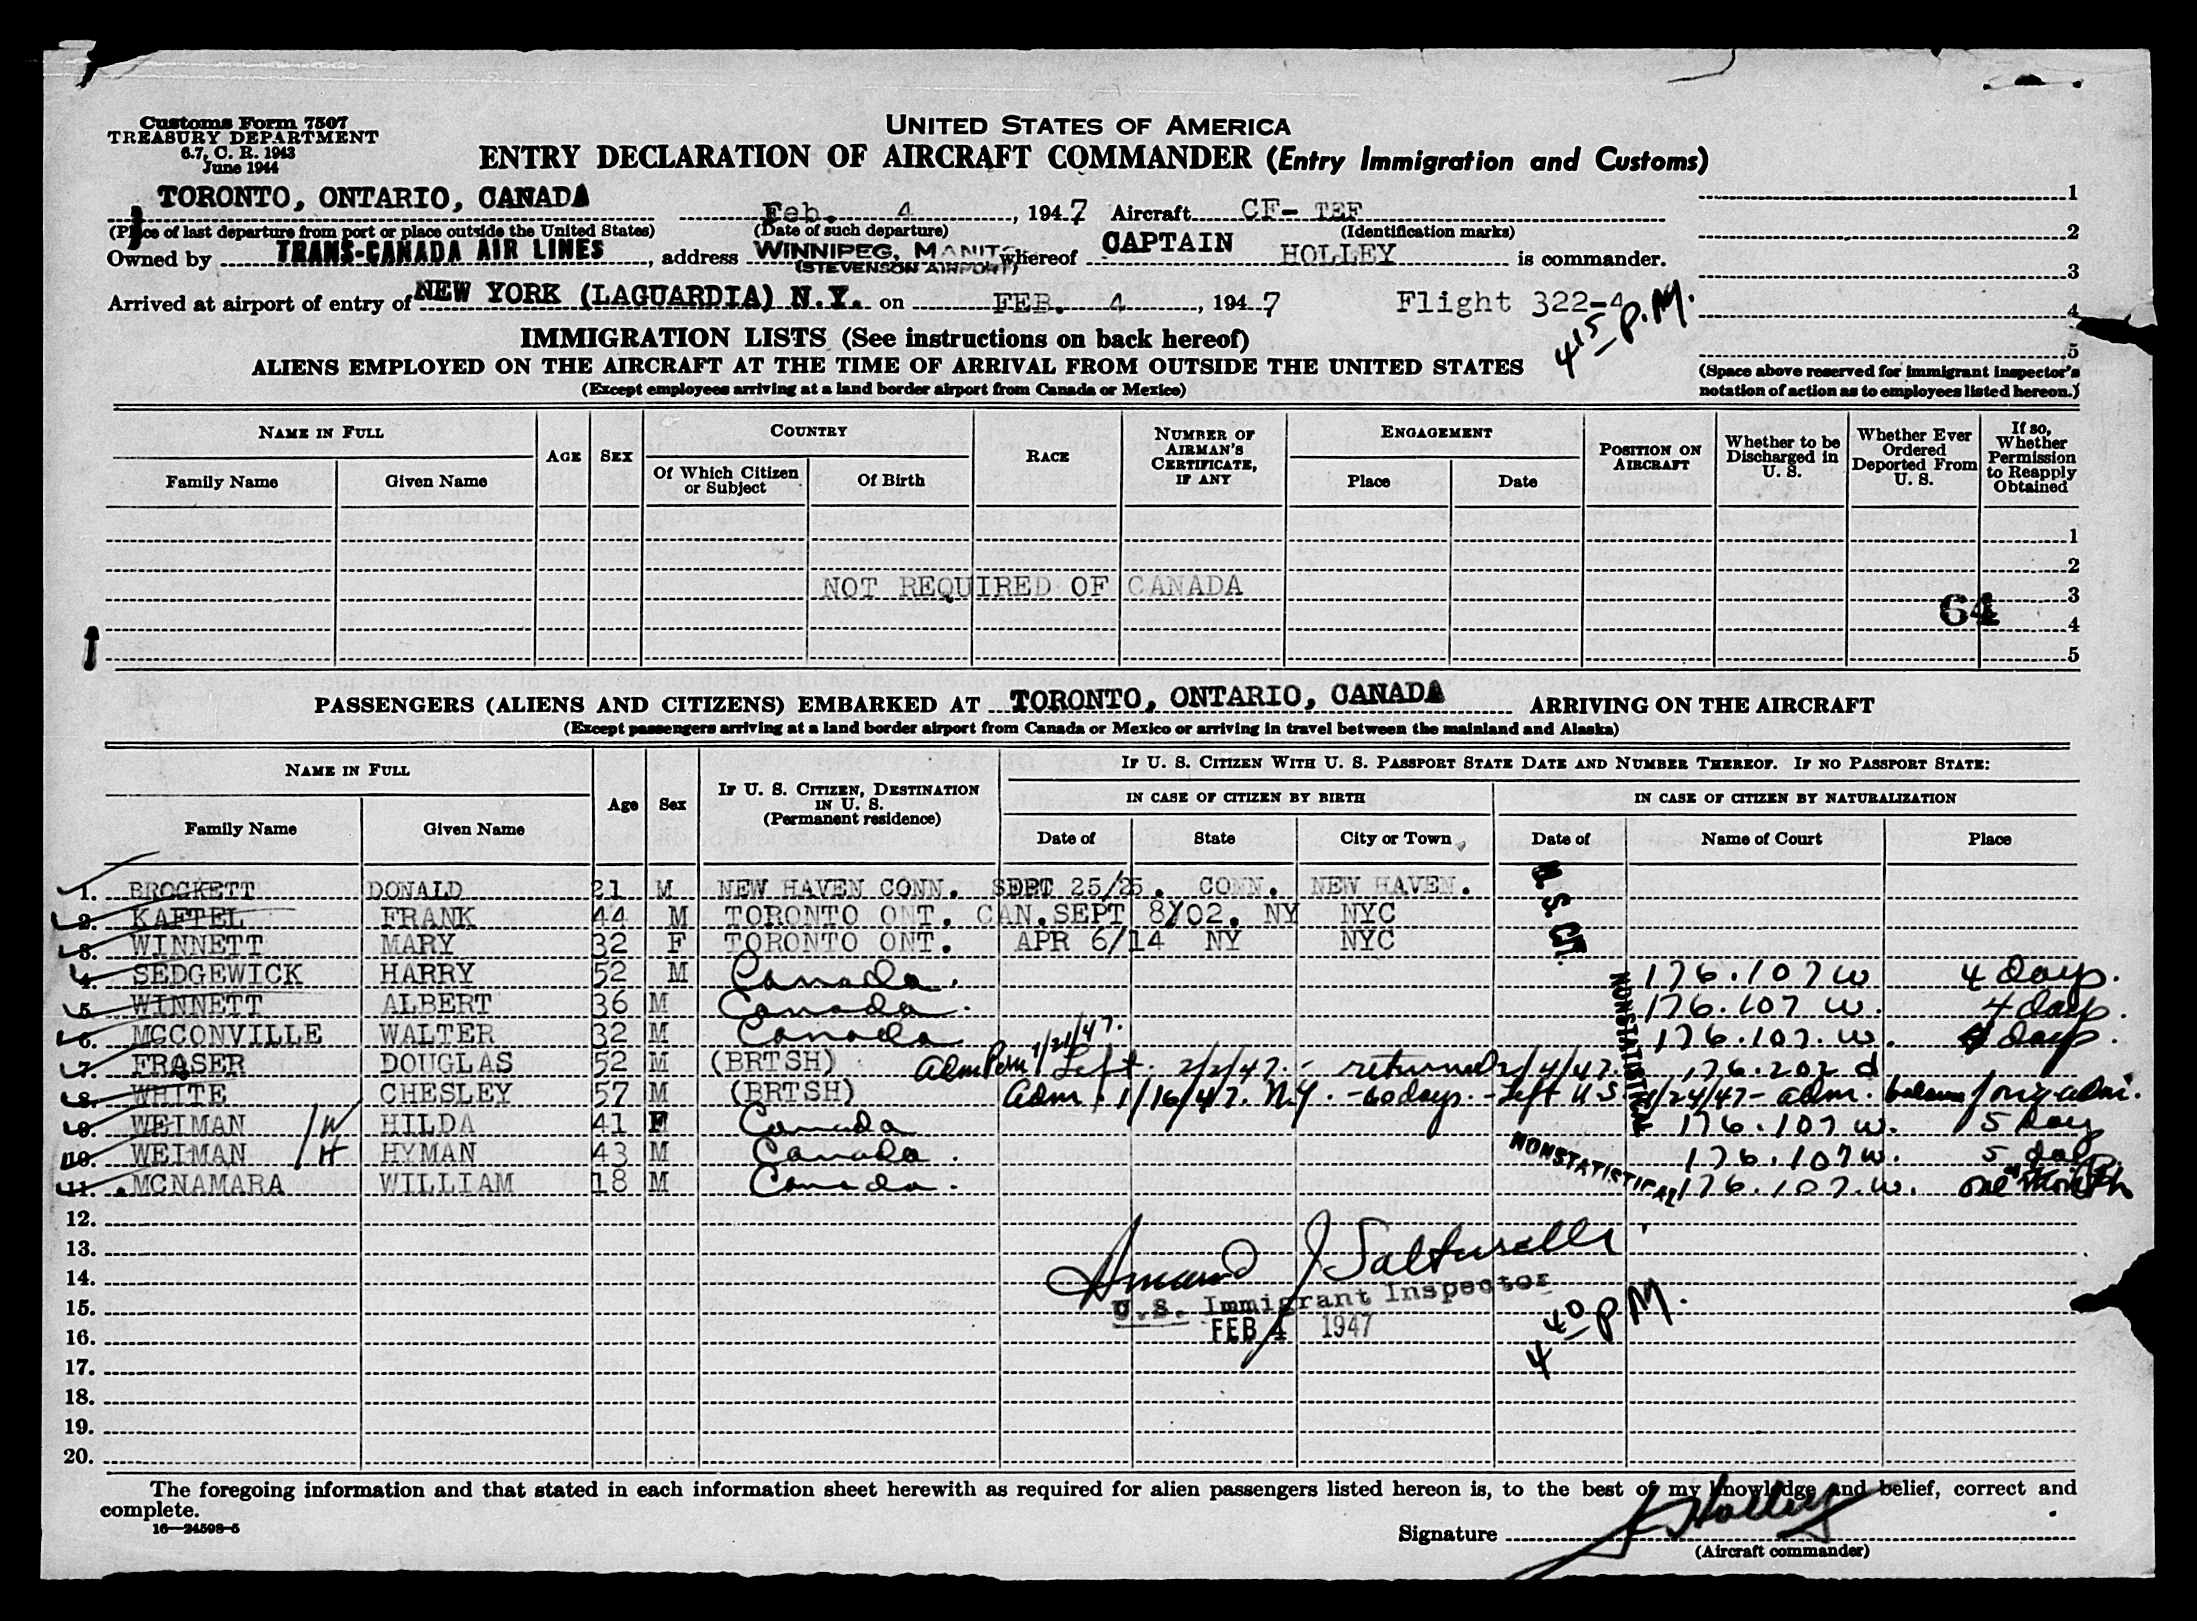 Customs Form 7507
TREASURY DEPARTMENT
6.7, C. R. 1943
June 1944
UNITED STATES OF AMERICA
ENTRY DECLARATION OF AIRCRAFT COMMANDER (Entry Immigration and Customs)
TORONTO, ONTARIO, CANADA Feb. 4, 1947 Aircraft CF- TEF
(Place of last departure from port or place outside the United States) (Date of such departure) (Identification marks)
Owned by TRANS-CANADA AIR LINES, address WINNIPEG, MANITO whereof CAPTAIN HOLLEY is commander.
(STEVENSON AIRPORT)
Arrived at airport of entry of NEW YORK (LAGUARDIA) N.Y. on FEB. 4, 1947 Flight 322-4
4 15 P.M.
1
2
3
4
5
(Space above reserved for immigrant inspector's notation of action as to employees listed hereon.)
IMMIGRATION LISTS (See instructions on back hereof)
ALIENS EMPLOYED ON THE AIRCRAFT AT THE TIME OF ARRIVAL FROM OUTSIDE THE UNITED STATES
(Except employees arriving at a land border airport from Canada or Mexico)
NAME IN FULL AGE SEX COUNTRY RACE NUMBER OF AIRMAN'S CERTIFICATE, IF ANY ENGAGEMENT POSITION ON AIRCRAFT Whether to be Discharged in U. S. Whether Ever Ordered Deported From U. S. If so, Whether Permission to Reapply Obtained
Family Name Given Name Of Which Citizen or Subject Of Birth Place Date
1
2
NOT REQUIRED OF CANADA 3
64
4
5
PASSENGERS (ALIENS AND CITIZENS) EMBARKED AT TORONTO, ONTARIO, CANADA ARRIVING ON THE AIRCRAFT
(Except passengers arriving at a land border airport from Canada or Mexico or arriving in travel between the mainland and Alaska)
NAME IN FULL Age Sex IF U. S. CITIZEN, DESTINATION IN U. S. (Permanent residence) IF U. S. CITIZEN WITH U. S. PASSPORT STATE DATE AND NUMBER THEREOF. IF NO PASSPORT STATE:
IN CASE OF CITIZEN BY BIRTH IN CASE OF CITIZEN BY NATURALIZATION
Family Name Given Name Date of State City or Town Date of Name of Court Place
1. BROCKETT DONALD 21 M NEW HAVEN CONN. SEPT 25/25. CONN. NEW HAVEN.
2. KAFTEL FRANK 44 M TORONTO ONT. CAN. SEPT 8/02. NY NYC
3. WINNETT MARY 32 F TORONTO ONT. APR 6/14 NY NYC
4. SEDGEWICK HARRY 52 M Canada. 176.107 W 4 days.
5. WINNETT ALBERT 36 M Canada. 176.107 W. 4 days.
6. MCCONVILLE WALTER 32 M Canada 176.107.W. 4 days.
7. FRASER DOUGLAS 52 M (BRTSH) Adm Perm 1/21/47. Left 2/2/47. - returned 2/4/47. 176.202 d
8. WHITE CHESLEY 57 M (BRTSH) Adm. 1/16/47. N.Y. - 60 days. - Left U.S. 1/24/47 - adm. balance orig. adm.
9. WEIMAN /W HILDA 41 F Canada 176.107 W. 5 days
10. WEIMAN /H HYMAN 43 M Canada. 176.107 W. 5 days
11. MCNAMARA WILLIAM 18 M Canada. 176.107.W. one month
NONSTATISTICAL
NONSTATISTICAL
12.
13.
14.
15. U. S. Immigrant Inspector
16. FEB 4 1947
4 40 P.M.
17.
18.
19.
20.
The foregoing information and that stated in each information sheet herewith as required for alien passengers listed hereon is, to the best of my knowledge and belief, correct and
complete.
16—24598-5
Signature Holley
(Aircraft commander)